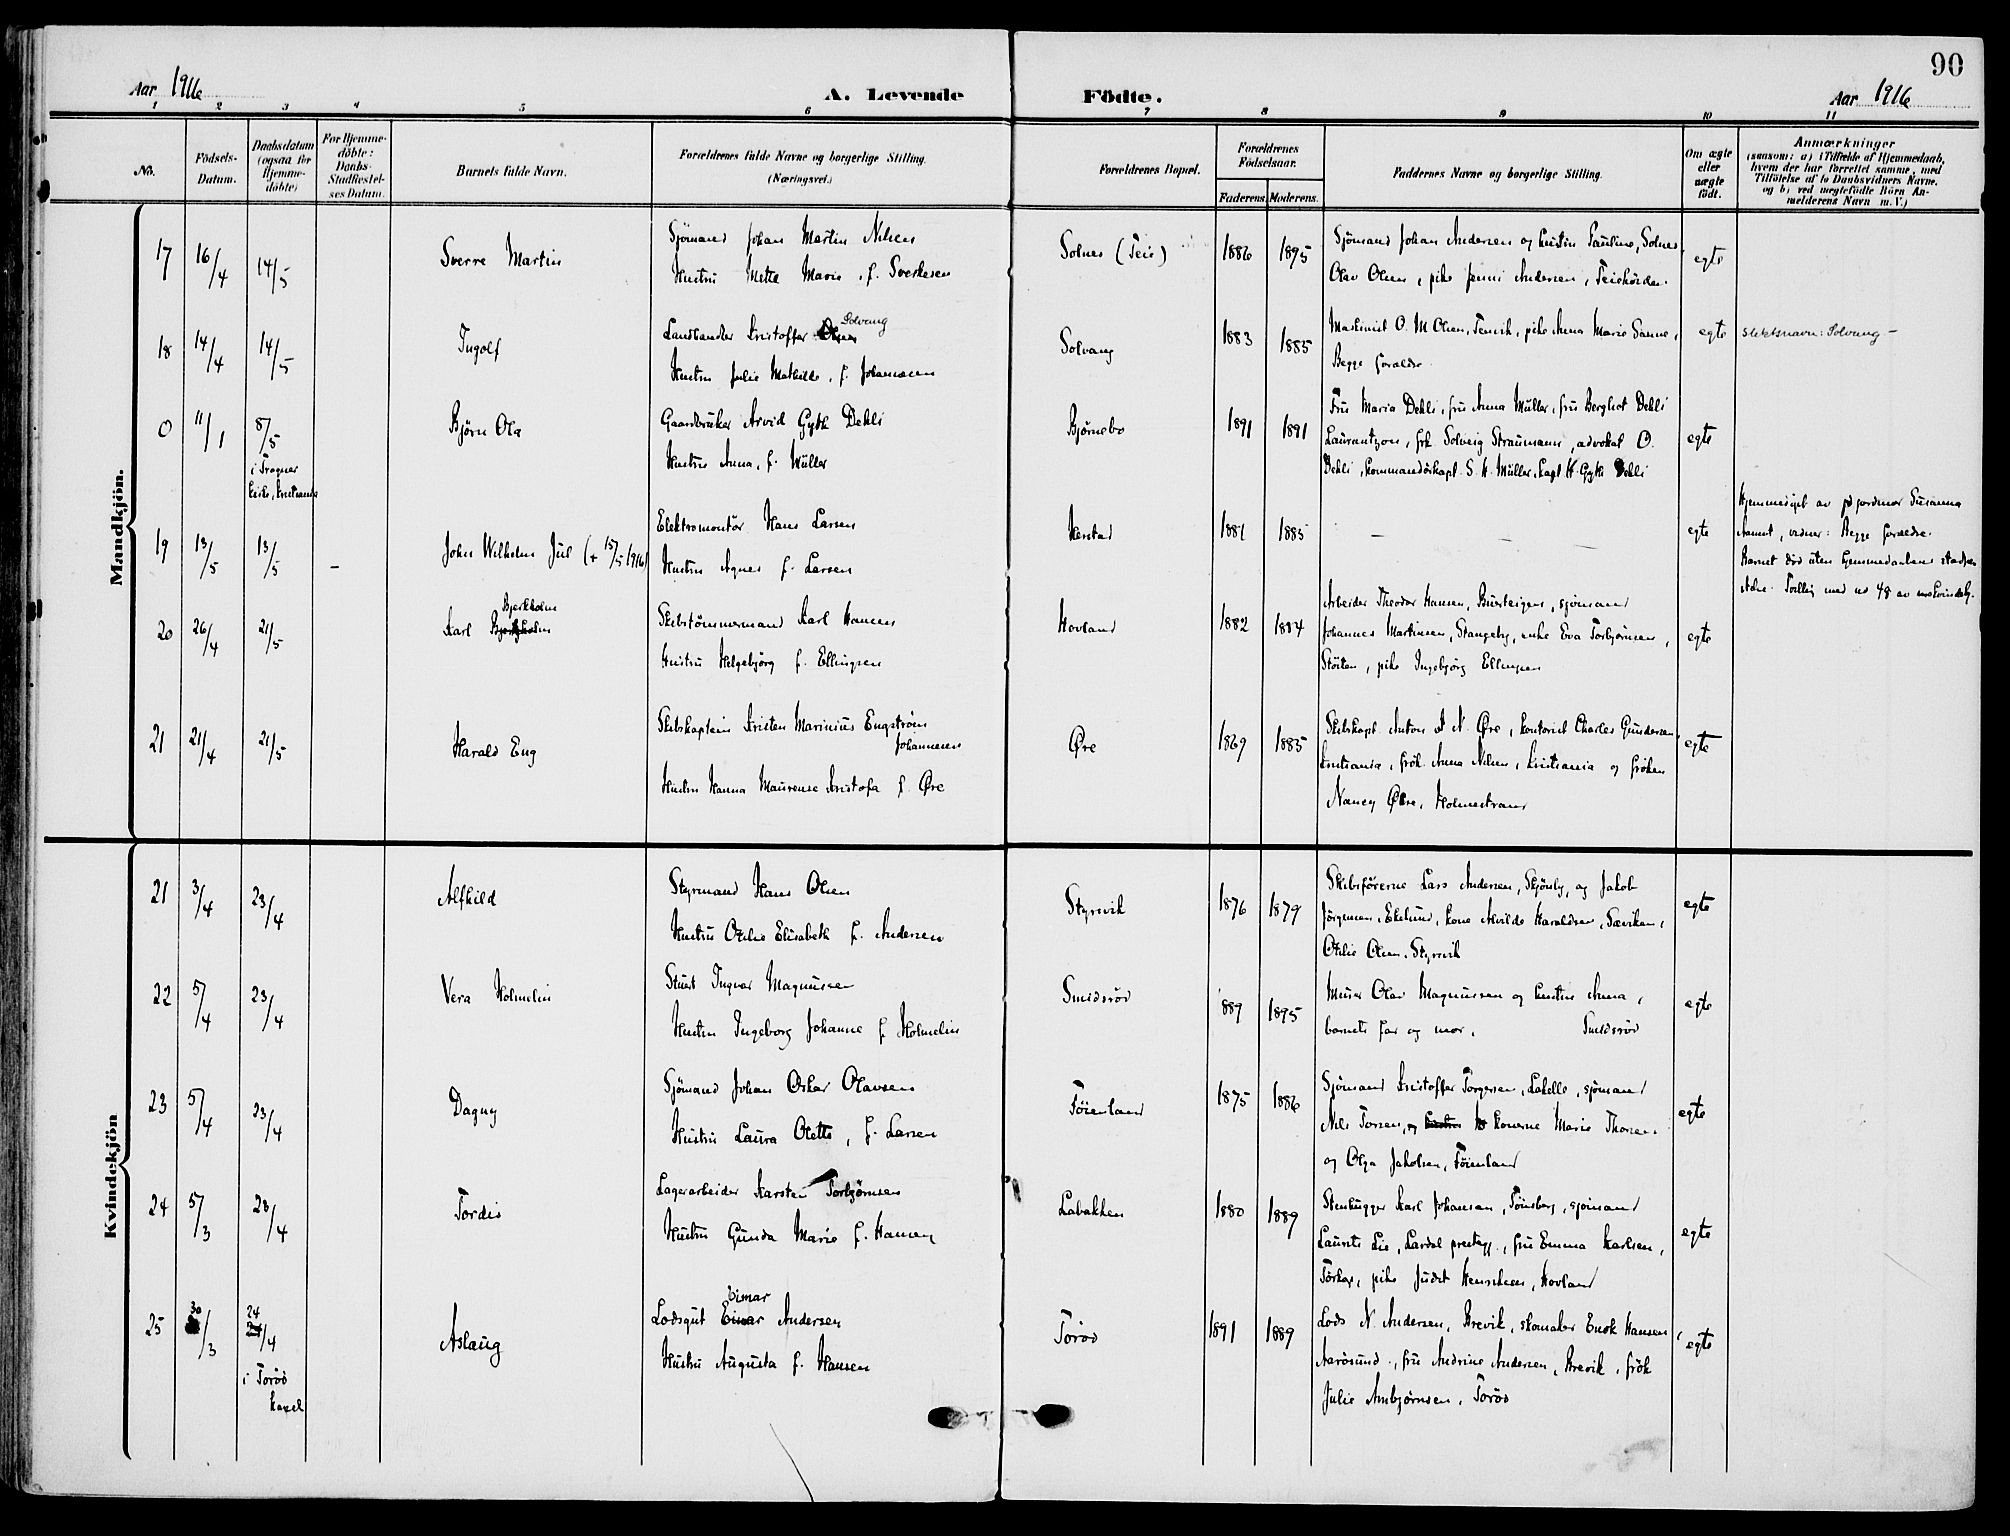 90
Aar 1916 A. Levende Födte. Aar 1916
1 2 3 4 5 6 7 8 9 10 11
No.
Födsels-
Datum.
Daabsdatum
(ogsaa for
Hjemme-
döbte)
For Hjemme-
döbte:
Daabs-
Stadfæstel-
ses Datum.
Barnets fulde Navn.
Forældrenes fulde Navne og borgerlige Stilling.
(Næringsvei.)
Forældrenes Bopæl.
Forældrenes
Födselsaar.
Faderens. Moderens.
Faddernes Navne og borgerlige Stilling.
Om ægte
eller
uægte
födt.
Anmærkninger
(saasom: a) i Tilfælde af Hjemmedaab,
hvem der har forrettet samme, med
Tilföielse af to Daabsvidners Navne,
og b) ved uægtefödte Börn An-
melderens Navn m. V.)
Mandkjön.
17 16/4 14/5 Sverre Martin
Sjömand Johan Martin Nilsen
Hustru Mette Marie, f. Sverkesen
Solnes (Teie) 1886 1895
Sjömand Johan Andersen og hustru Pauline, Solnes
Olav Olsen, pike Jenni Andersen, Teiehöiden.
egte
18 14/4 14/5 Ingolf
Landhandler Kristoffer Olsen Solvang
Hustru Julie Mathilde, f. Johannesen
Solvang 1883 1885
Maskinist O. M. Olsen, Tenvik, pike Anna Marie Sanne,
Begge foreldre.
egte slektsnavn: Solvang -
0 11/1 8/5
i Frogner
kirke, Kristiania
Björn Ola
Gaardbruker Arvid Gyth Dehli
Hustru Anna, f. Müller
Bjørnebo 1891 1891
Fru Maria Dehli, fru Anna Müller, fru Berghot Dehli
Laurantzon, frk Solveig Straumann, advokat O.
Dehli, Kommandörkapt. S. H. Müller, kapt. H. Gyth Dehli
egte
19 13/5 13/5 - John Wilhelm Jul (+ 15/5 1916)
Elektromontör Hans Larsen
Hustru Agnes f. Larsen
Herstad 1881 1885 - - -
egte
Hjemmedöpt av jordmor Susanna
Aamot, vidner: Begge foreldre.
Barnet död uten hjemmedaabens stadfes-
telse. Tvilling med no 48 av
20 26/4 21/5 Karl Bjerkholm
Skibstömmermand Karl Hansen
Hustru Helgebjörg f. Ellingsen
Hovland 1882 1884
Arbeider Theodor Hansen, Bursteigen, sjömand
Johannes Martinsen, Stangeby, enke Eva Torbjörnsen,
Stöiten, pike Ingebjörg Ellingsen
egte
21 21/4 21/5 Harald Eng
Skibskaptein Kristen Marinius Engström
Johannesen
Hustru Hanna Maurense Kristofa f. Øre
Øre 1869 1885
Skibskapt. Anton A N. Øre, kontorist Charles Gundersen
Kristiania, frök. Anna Nilsen, Kristiania og fröken
Nancy Øre, Holmestrand
egte
Kvindekjön
21 3/4 23/4 Alfhild
Styrmand Hans Olsen
Hustru Otilie Elisabeth f. Andersen
Styrsvik 1876 1879
Skibsförerne Lars Andersen, Skjönby, og Jakob
Jörgensen, Ekelund, kone Alvilde Haraldsen, Sæviken,
Otilie Olsen, Styrsvik
egte
22 5/4 23/4 Vera Holmelin
Stuert Ingvar Magnussen
Hustru Ingeborg Johanne f. Holmelin
Smidsröd 1889 1895
Murer Olav Magnussen og hustru Anna,
barnets far og mor, Smidsröd
egte
23 5/4 23/4 Dagny
Sjömand Johan Oskar Olavsen
Hustru Laura Olette, f. Larsen
Föienland 1875 1886
Sjömand Kristoffer Torgersen, Lakelle, sjömand
Nils Torsen, og konerne Marie Thorsen
og Olga Jakobsen, Föienland
egte
24 5/3 23/4 Tordis
Lagerarbeider Karsten Torbjørnsen
Hustru Gunda Marie f. Hansen
Labakken 1880 1889
Stenhugger Karl Johansen, Tönsberg, sjömand
Laurits Lie, Lardal prestegj., fru Emma Karlsen,
Torkop, pike Judit Henriksen, Hovland
egte
25 30/3 24/4
i Torød
kapel
Aslaug
Lodsgut Einar Andersen
Hustru Augusta f. Hansen
Torød 1891 1889
Lods N. Andersen, Brevik, skomaker Enok Hansen,
Aarösund, fru Andrine Andersen, Brevik, frök
Julie Ambjörnsen, Torød
egte